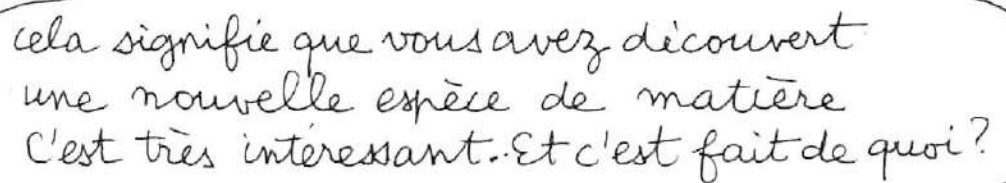 cela signifie que vous avez découvert
une nouvelle espèce de matière
C'est très intéressant..Et c'est fait de quoi?